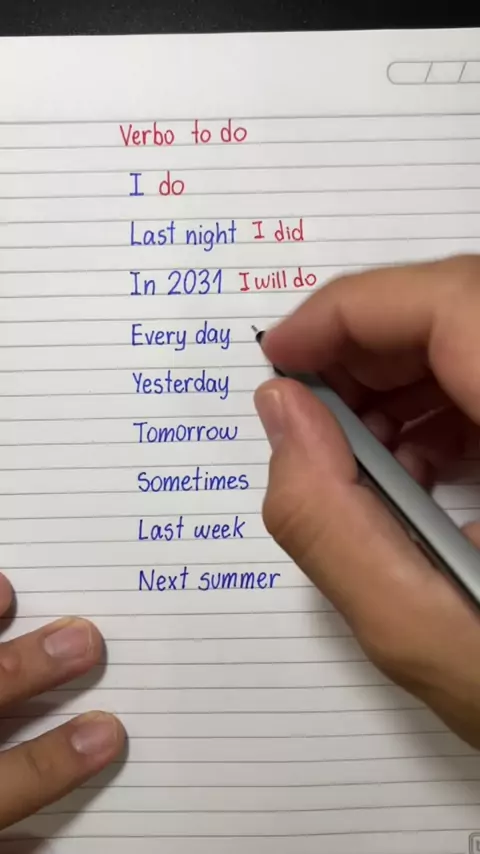 Verbo to do
I do
Last night I did
In 2031 I will do
Every day
Yesterday
Tomorrow
Sometimes
Last week
Next summer